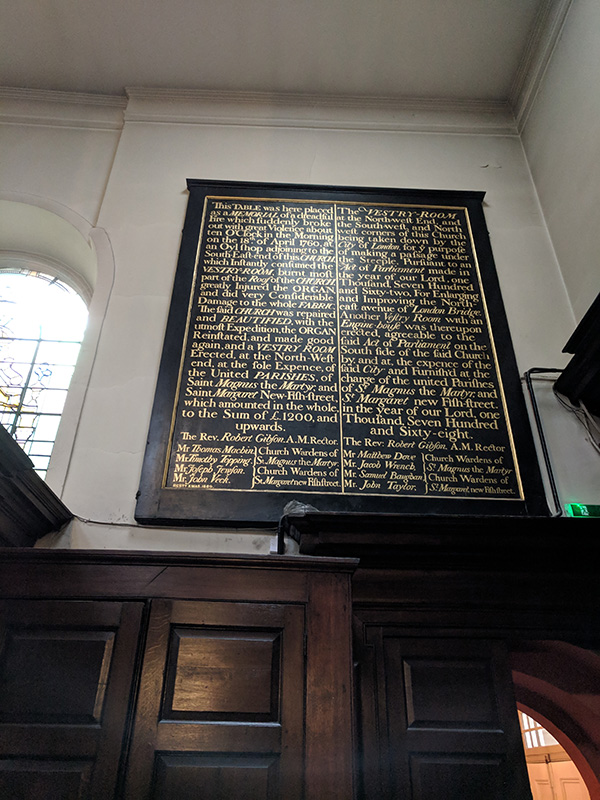 This TABLE was here placed
as a MEMORIAL of a dreadful
Fire which suddenly broke
out with great Violence about
ten O'Clock in the Morning
on the 18th of April 1760, at
an Oyl shop adjoining to the
South-East-end of this CHURCH
which Instantly consumed the
VESTRY-ROOM, burnt most
part of the Roof of the CHURCH
greatly Injured the ORGAN,
and did very Considerable
Damage to the whole FABRIC.
The said CHURCH was repaired
and BEAUTIFIED, with the
utmost Expedition, the ORGAN
Reinstated, and made good
again, and a VESTRY ROOM
Erected, at the North-West
end, at the sole Expence, of
the United PARISHES, of
Saint Magnus the Martyr, and
Saint Margaret New-Fish-street,
which amounted in the whole,
to the Sum of £.1200, and
upwards.
The Rev. Robert Gibson. A.M. Rector
Mr Thomas Macbin,
Mr Timothy Topping,
Mr. Joseph Jewson,
Mr. John Veck.
Church Wardens of
St. Magnus the Martyr.
Church Wardens of
St. Margaret new Fish street.
The VESTRY-ROOM
at the North-west End, and
the South-west, and North
west corners of this Church
being taken down by the
City of London, for ye purpose
of making a passage under
ye Steeple, Pursuant to an
Act of Parliament made in
the year of our Lord, one
Thousand, Seven Hundred
and Sixty-two, For Enlarging
and Improving the North-
east avenue of London Bridge.
Another Vestry Room with an
Engine-house was thereupon
erected, agreeable to the
said Act of Parliament on the
South side of the said Church
by, and at, the expence of the
said City and Furnish'd at the
charge of the united Parishes
of St. Magnus the Martyr; and
St. Margaret new Fish-street.
in the year of our Lord, one
Thousand, Seven Hundred
and Sixty-eight.
The Rev. Robert Gibson. A.M. Rector
Mr Matthew Dove
Mr. Jacob Wrench,
Mr. Samuel Baughan
Mr. John Taylor.
Church Wardens of
St. Magnus the Martyr
Church Wardens of
St. Margaret, new Fish street.